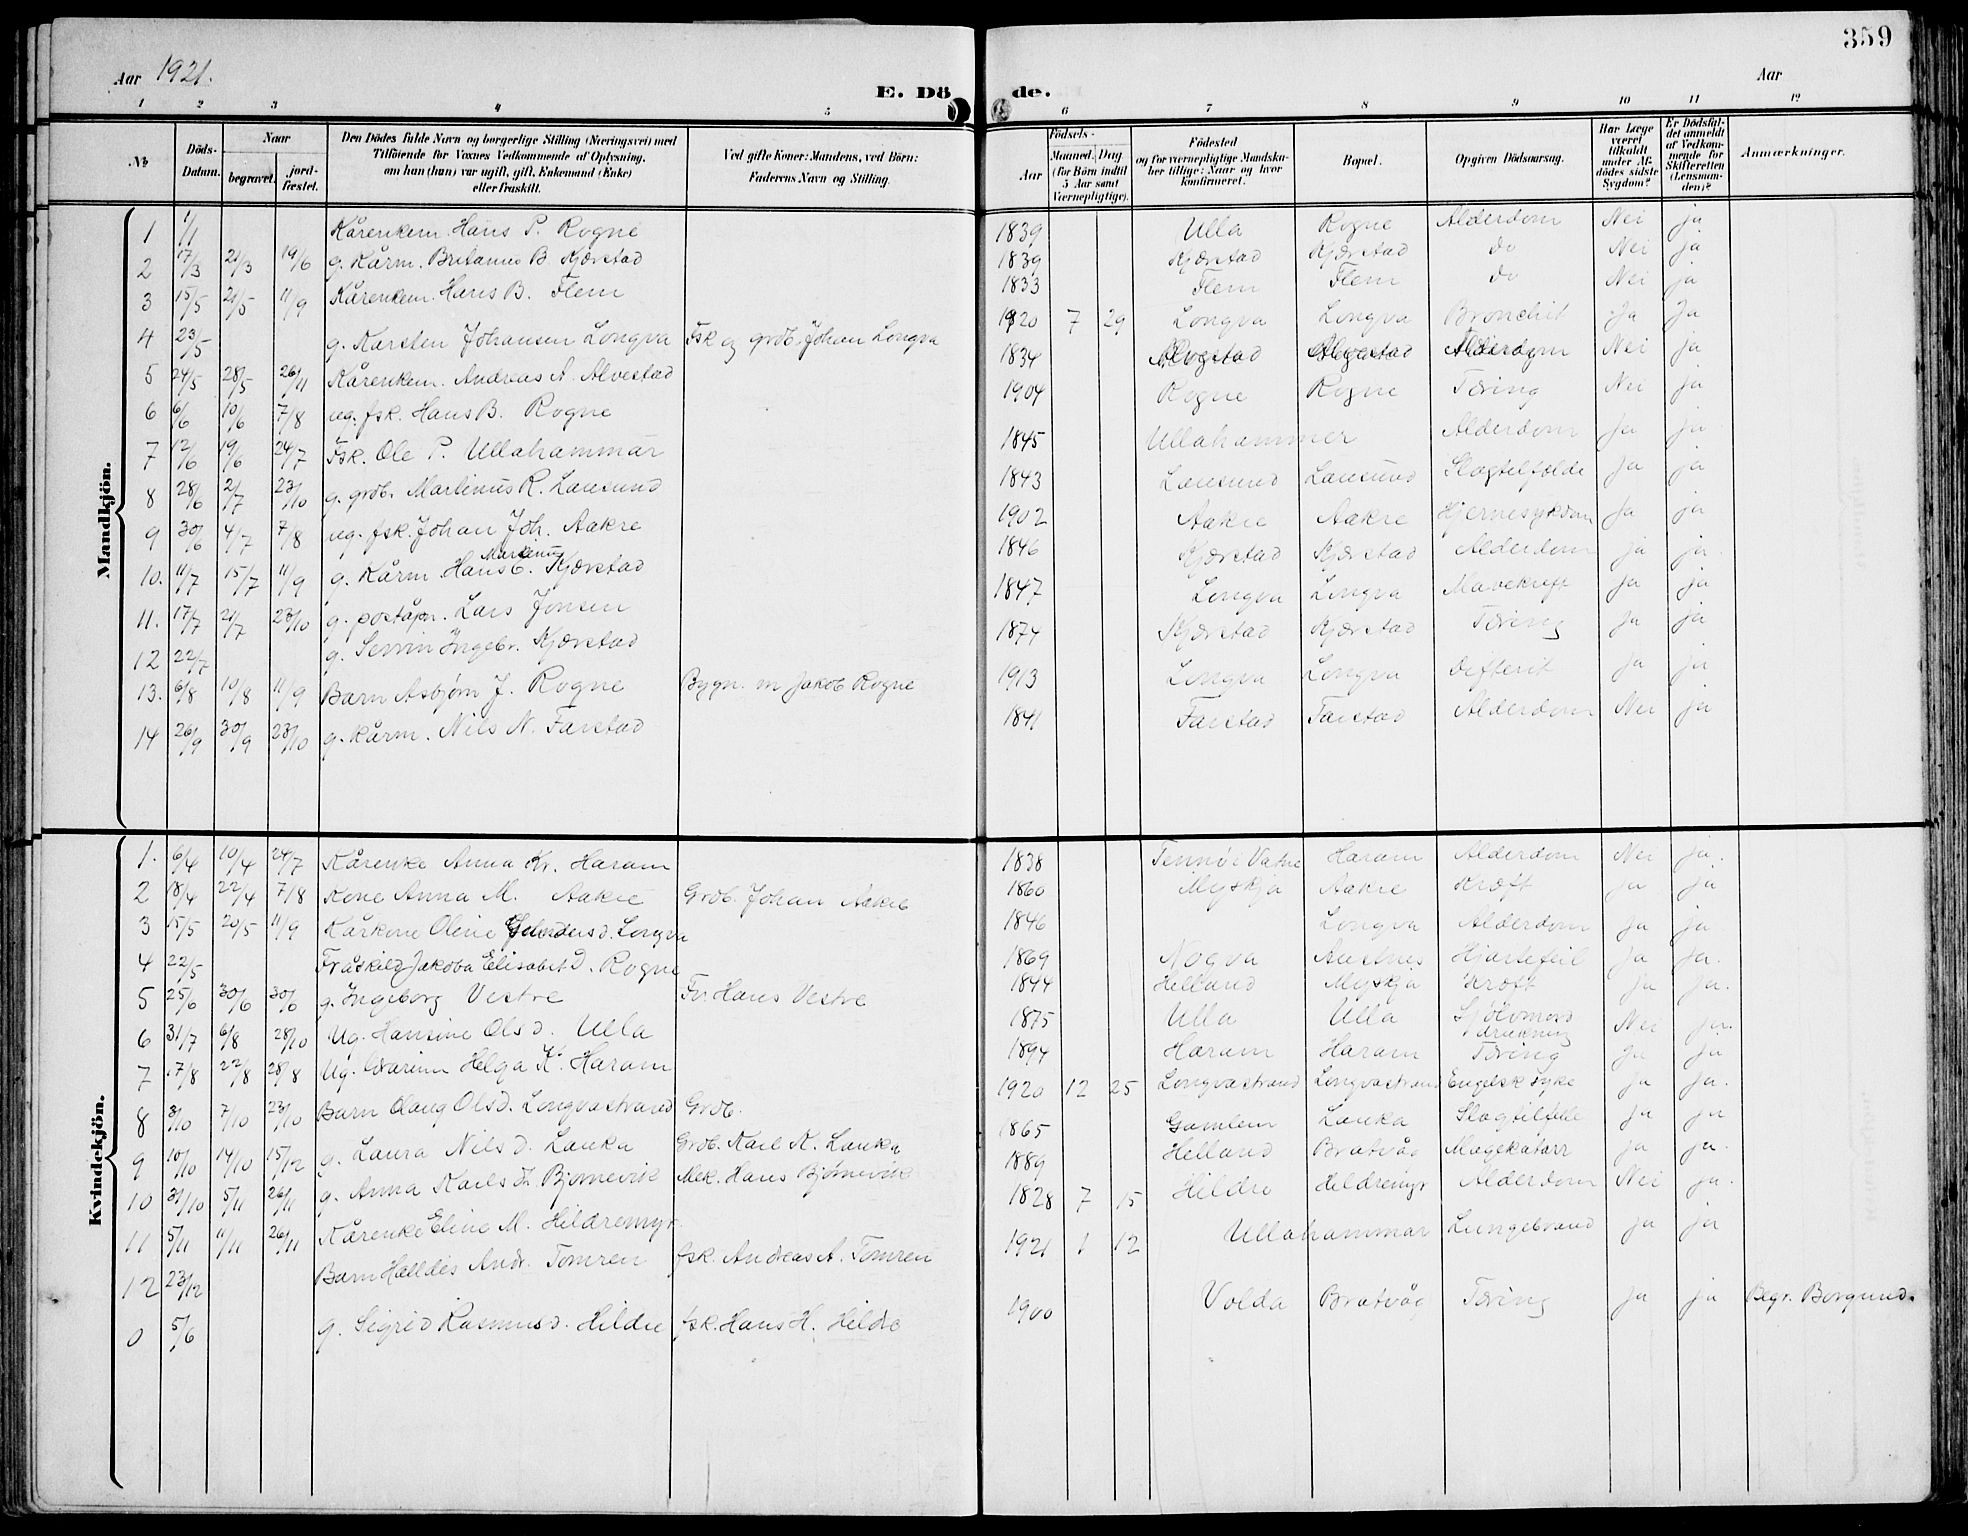 359
Aar 1921.
Aar
E. Dö de.
1 2 3 4 5 6 7 8 9 10 11 12
№
Döds-Datum.
Naar
begravet.
jord-fæstet.
Den Dödes fulde Navn og borgerlige Stilling (Næringsvei) med
Tilföiende for Voxnes Vedkommende af Oplysning,
om han (hun) var ugift, gift, Enkemand (Enke)
eller fraskilt.
Ved gifte Koner: Mandens, ved Börn:
Faderens Navn og Stilling.
Födsels-
Aar
Maaned. Dag
(for Börn indtil
5 Aar samt
Værnepligtige).
Födested
og for værnepligtige Mandska-
ber tillige: Naar og hvor
konfirmeret.
Bopæl.
Opgiven Dödsaarsag.
Har Læge
været
tilkaldt
under Af-
dödes sidste
Sygdom?
Er Dödsfal-
det anmeldt
af Vedkom-
mende for
Skifteretten
(Lensman-
den)?
Anmærkninger.
Mandkjön.
1 1/1 Kårenkem. Hans P. Rogne 1839 Ulla Rogne Alderdom Nei ja
2 17/3 21/3 19/6 g. Kårm. Britanus B. Kjærstad 1839 Kjærstad Kjærstad do Nei ja
3 15/5 21/5 11/9 Kårenkem. Hans B. Flem 1833 Flem Flem do Nei ja
4 23/5 g. Karsten Johansen Longva Fsk og grdb. Johan Longva 1920 7 29 Longva Longva Bronchit Ja Ja
5 24/5 28/5 26/11 Kårenkem. Andreas A. Alvestad 1834 Alvestad Alvestad Alderdom Nei ja
6 6/6 10/6 7/8 ug. fsk. Hans B. Rogne 1904 Rogne Rogne Tæring Nei ja
7 12/6 19/6 24/7 Fsk. Ole P. Ullahammar 1845 Ullahammer Alderdom Ja ja
8 28/6 2/7 23/10 g. grdb. Martinus R. Lausund 1843 Lausund Lausund Slagtilfælde Ja ja
9 30/6 4/7 7/8 ug. fsk. Johan Joh. Aakre 1902 Aakre Aakre Hjernesykdom Ja ja
10. 11/7 15/7 11/9 g. Kårm. Hans Kjærstad 1846 Kjærstad Kjærstad Alderdom ja ja
11. 17/7 21/7 23/10 g. poståpn. Lars Jonsen 1847 Longva Longva Mavekræft Ja ja
12 22/7 g. Sevrin Ingebr. Kjærstad 1874 Kjærstad Kjærstad Tæring Ja ja
13. 6/8 10/8 11/9 Barn Asbjørn J. Rogne Bygn. m Jakob Rogne 1913 Longva Longva Difterit Ja ja
14 26/9 30/9 23/10 g. Kårm. Nils N. Farstad 1841 Farstad Farstad Alderdom Nei ja
Kvindekjön.
1. 6/4 10/4 24/7 Kårenke Anna Kr. Haram 1838 Tennø i Vatne Haram Alderdom Nei ja.
2 18/4 22/4 7/8 Kone Anna M. Aakre Grdb. Johan Aakre 1860 Myskja Aakre Kræft ja ja
3 15/5 20/5 11/9 Kårkone Oline Longva 1846 Longva Alderdom Ja ja.
4 22/5 Fraskild Jakoba Elisabet d. Rogne 1869 Nogva Austnes Hjartefeil Ja ja.
5 25/6 30/6 30/6 g. Ingeborg Vestre Fv. Hans Vestre 1844 Helland Myskja Kræft ja ja.
6 31/7 6/8 28/10 Ug. Hansine Olsd. Ulla 1875 Ulla Ulla Sjølvmord drukning Nei ja.
7 17/8 22/8 28/8 Ug. Helga K. Haram 1894 Haram Haram Tæring Ja ja
8 3/10 7/10 23/10 Barn Olaug Olsd. Longvastrand Grdb. 1920 12 25 Longvastrand Longvastrand Engelsk syke Ja ja.
9 10/10 14/10 15/12 g. Laura Nilsd. Lauka Grdb. Karl K. Lauka 1865 Gamlem Lauka Slagtilfelle Ja ja
10 31/10 5/11 26/11 g. Anna Karlsd. Bjørnevik Mek. Hans Bjørnevik 1889 Helland Bratvåg Magekatarr ja ja.
11 5/11 11/11 26/11 Kårenke Eline M. Hildremyr 1828 7 15 Hildre Hildremyr Alderdom Nei ja.
12 23/12 Barn Halldis Andr. Tomren fsk. Andreas A. Tomren 1921 1 12 Ullahammar Lungebrand ja ja
0 5/6 g. Sigrid Rasmusd. Hildre fsk. Hans H. Hildre 1900 Volda Bratvåg Tæring ja ja Begr. Borgund.